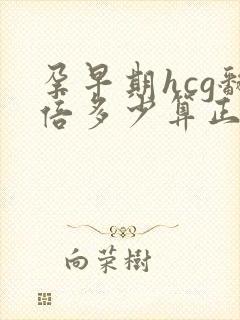 孕早期hcg翻
倍多少算正
向荣树